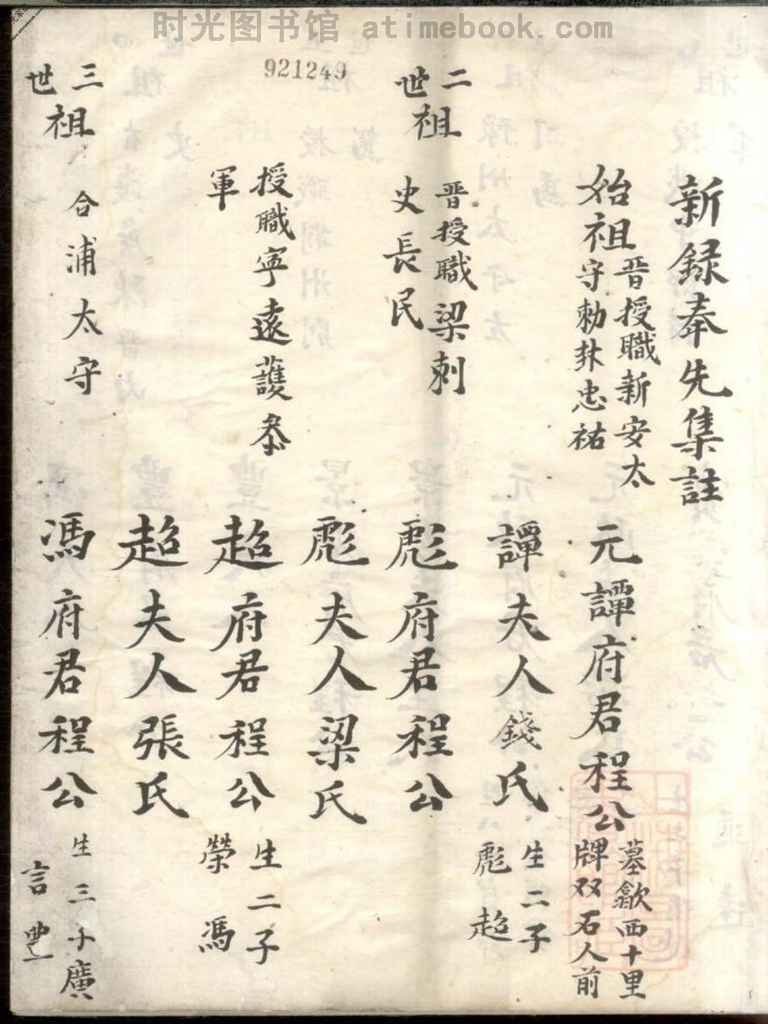 时光图书馆 atimebook.com
921249
新録奉先集註
始祖
晋授職新安太
守勅封忠祐
元譚府君程公
墓歙西十里
牌双石人前
譚夫人錢氏
生二子
彪 超
二世祖
晋授職梁刺
史長民
彪府君程公
彪夫人梁氏
授職寧遠護叅
軍
超府君程公
生二子
榮 馮
超夫人張氏
三世祖
合浦太守
馮府君程公
生三子廣
言 豊